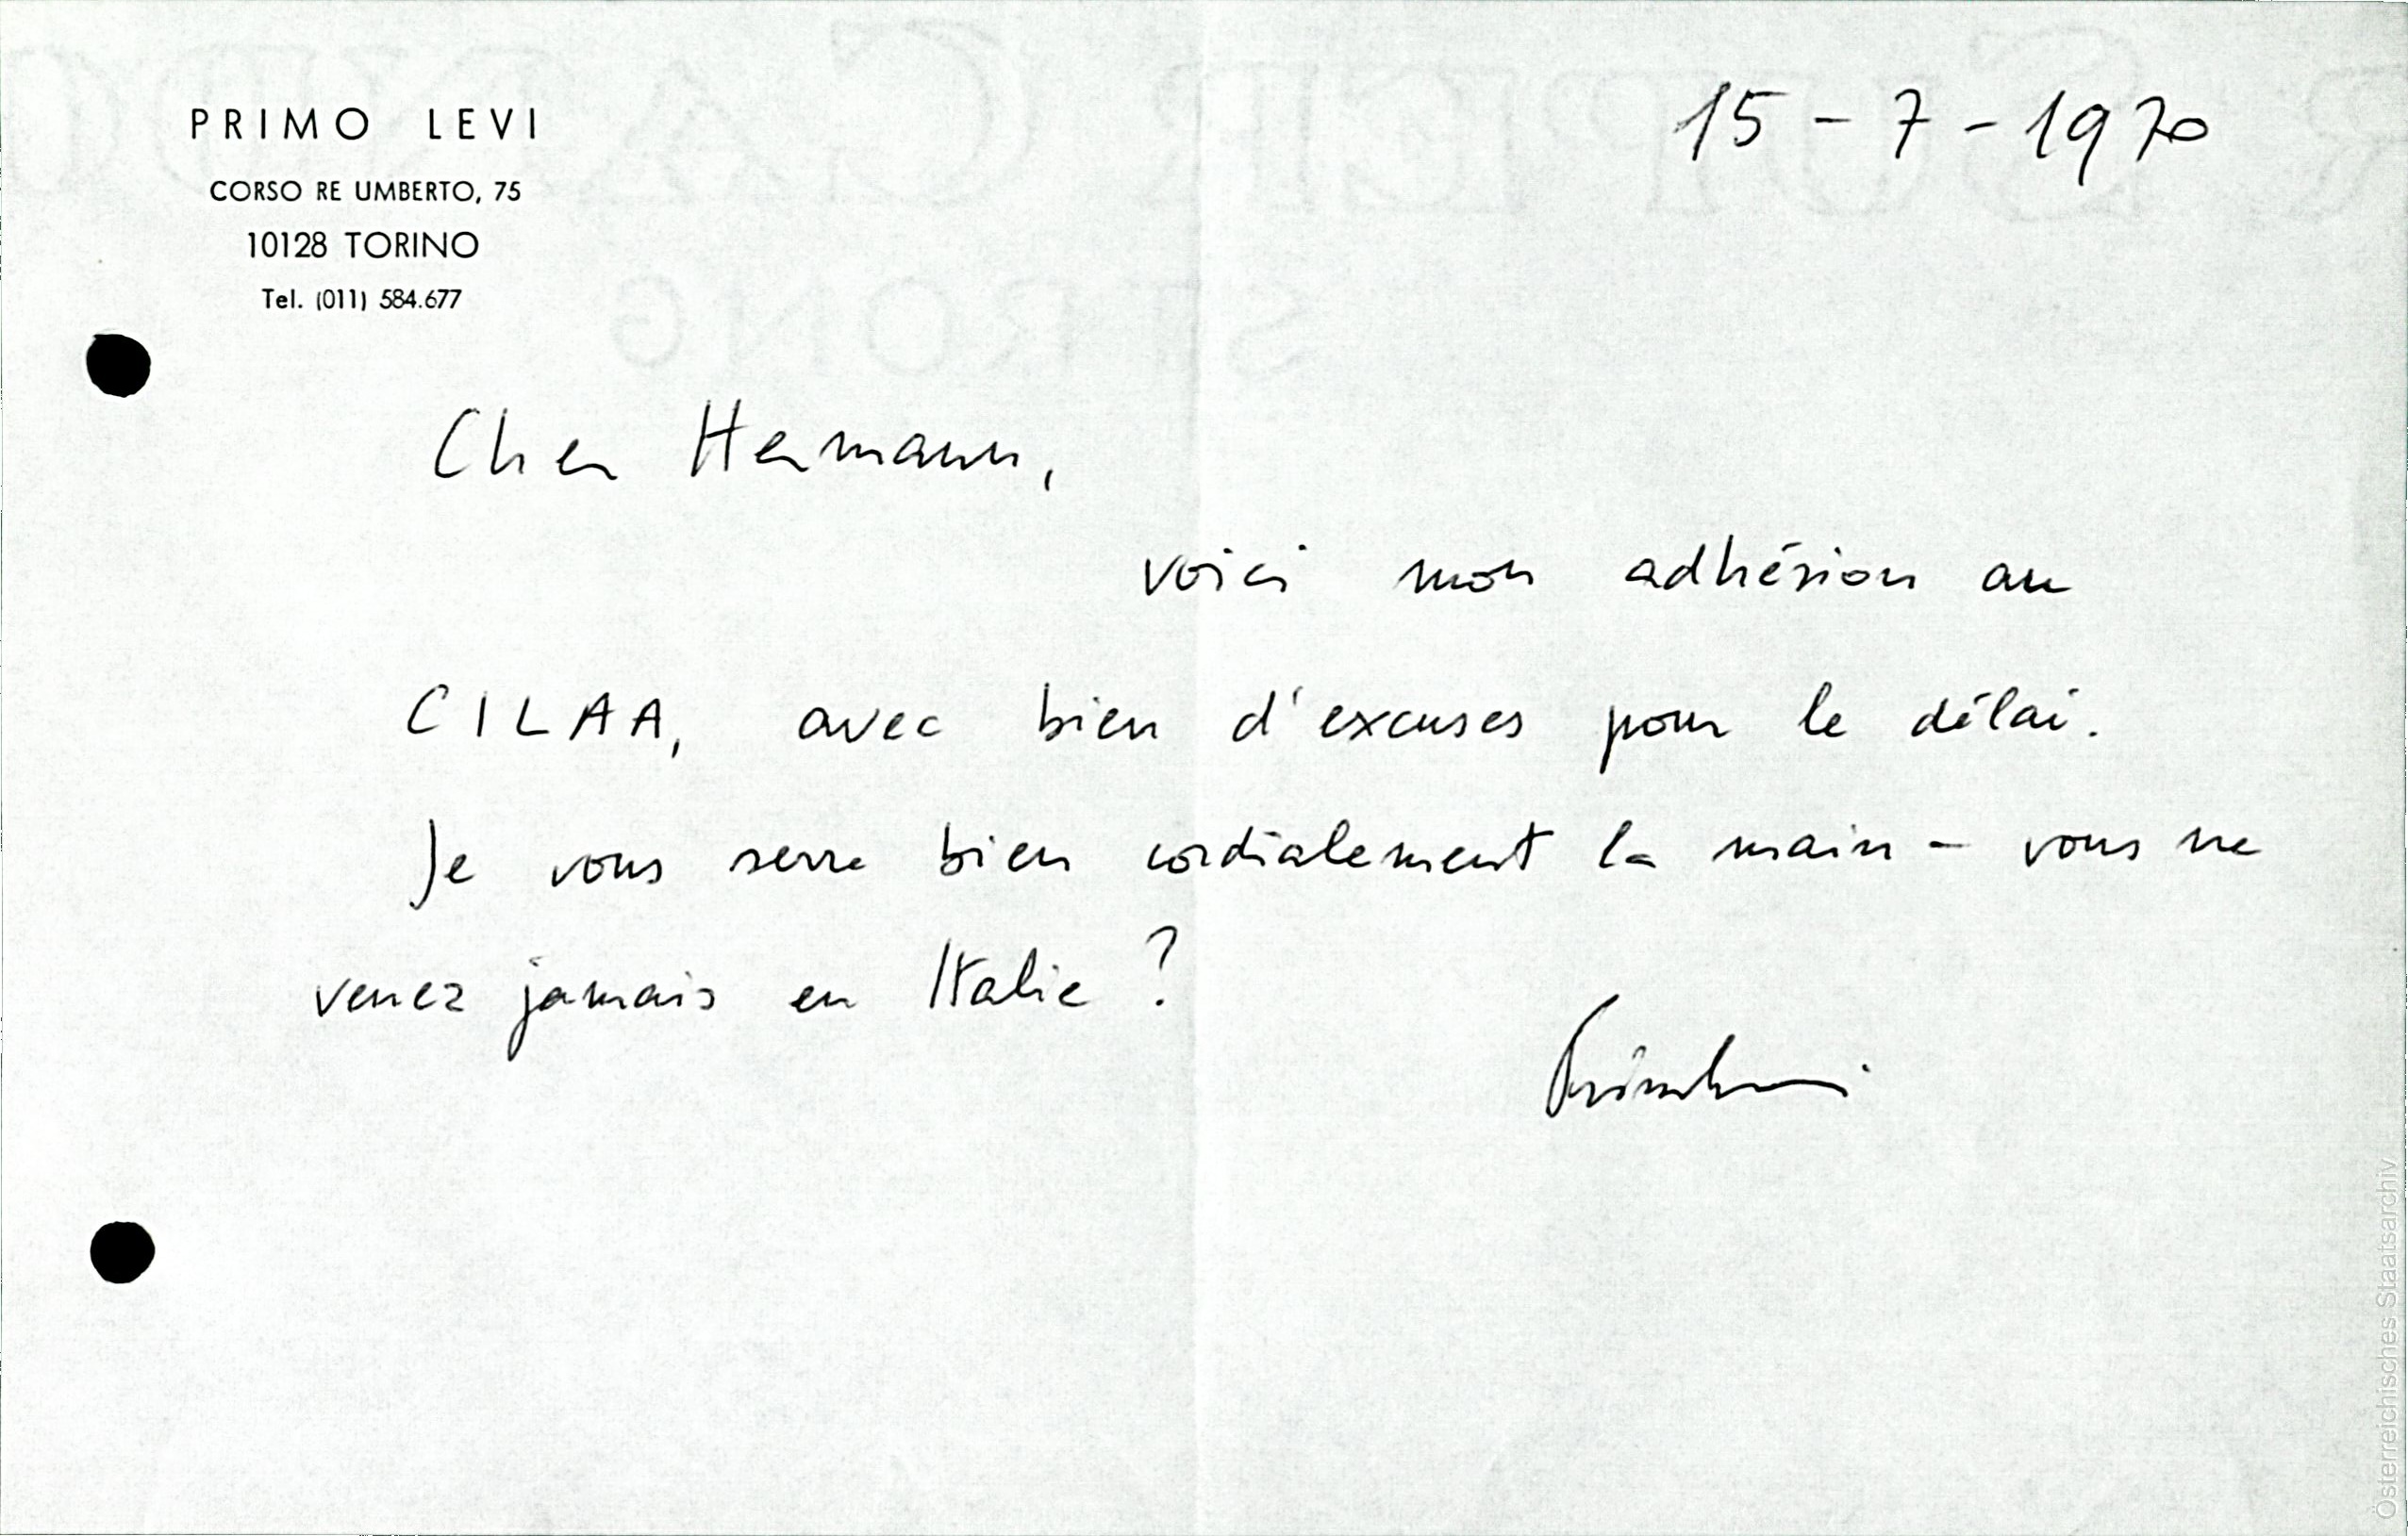 PRIMO LEVI
CORSO RE UMBERTO, 75
10128 TORINO
Tel. (011) 584.677
15-7-1970
Cher Hermann,
voici mon adhésion au
CILAA, avec bien d'excuses pour le délai.
Je vous serre bien cordialement la main - vous ne
venez jamais en Italie ?
Primo Levi
Österreichisches Staatsarchiv